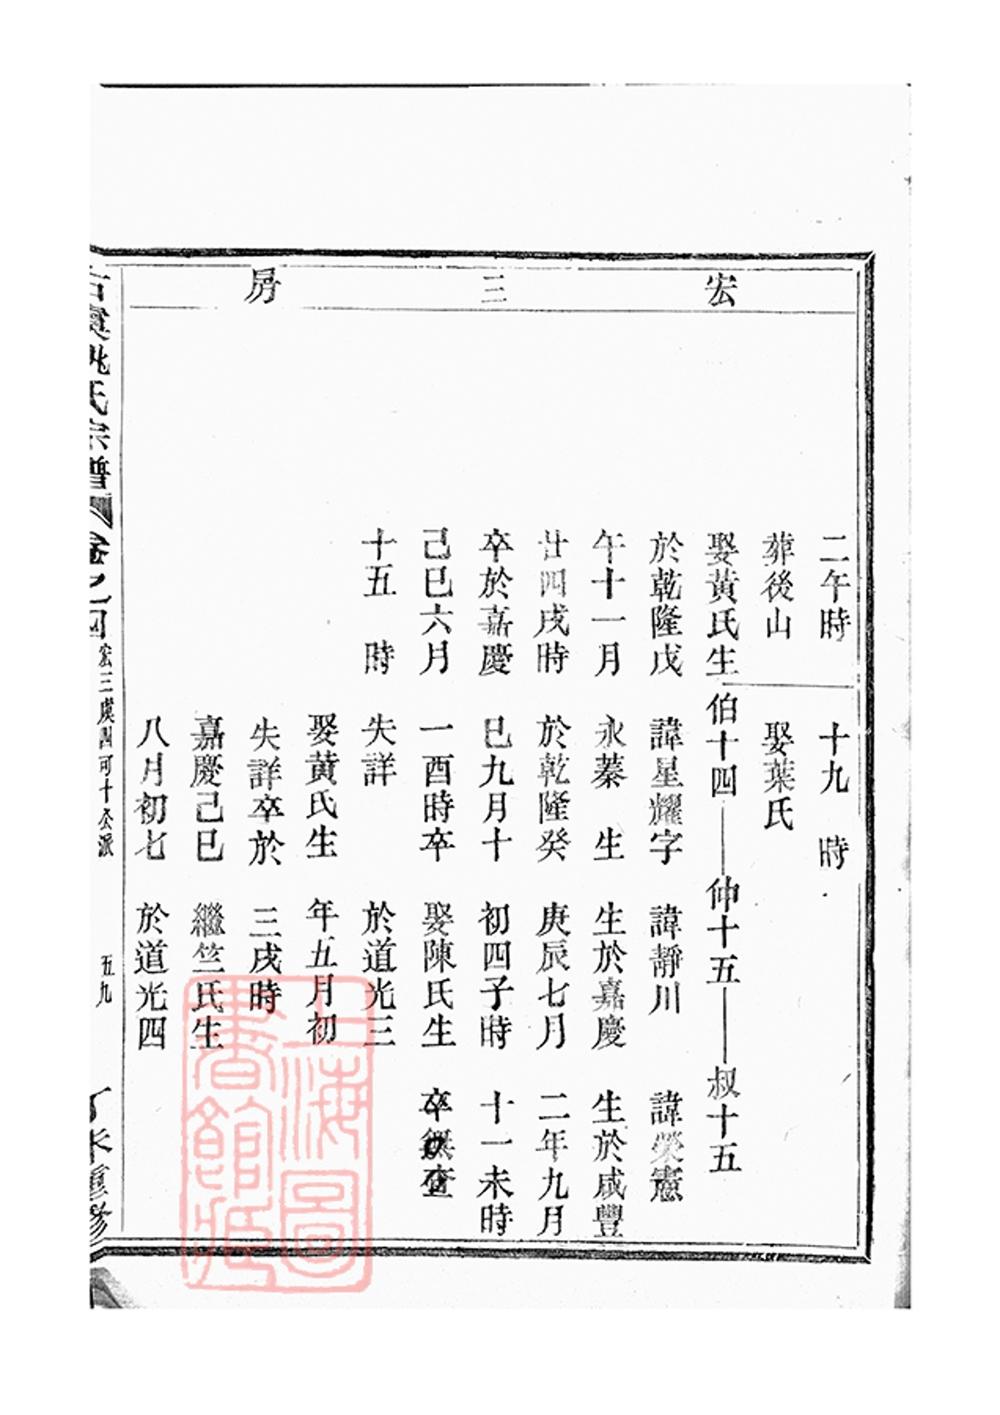 宏三房
二午時
葬後山
娶黃氏生
於乾隆戊
午十一月
廿四戌時
卒於嘉慶
己巳六月
十五 時
十九 時
娶葉氏
伯十四
諱星耀字
永蓁 生
於乾隆癸
巳九月十
一酉時卒
失詳
娶黃氏生
失詳卒於
嘉慶己巳
八月初七
仲十五
諱靜川
生於嘉慶
庚辰七月
初四子時
娶陳氏生
於道光三
年五月初
三戌時
繼竺氏生
於道光四
叔十五
諱榮憲
生於咸豐
二年九月
十一未時
卒 查
古虞姚氏宗譜 卷之四 宏三虞四河十公派 五九 丁未重修
上海圖書館藏